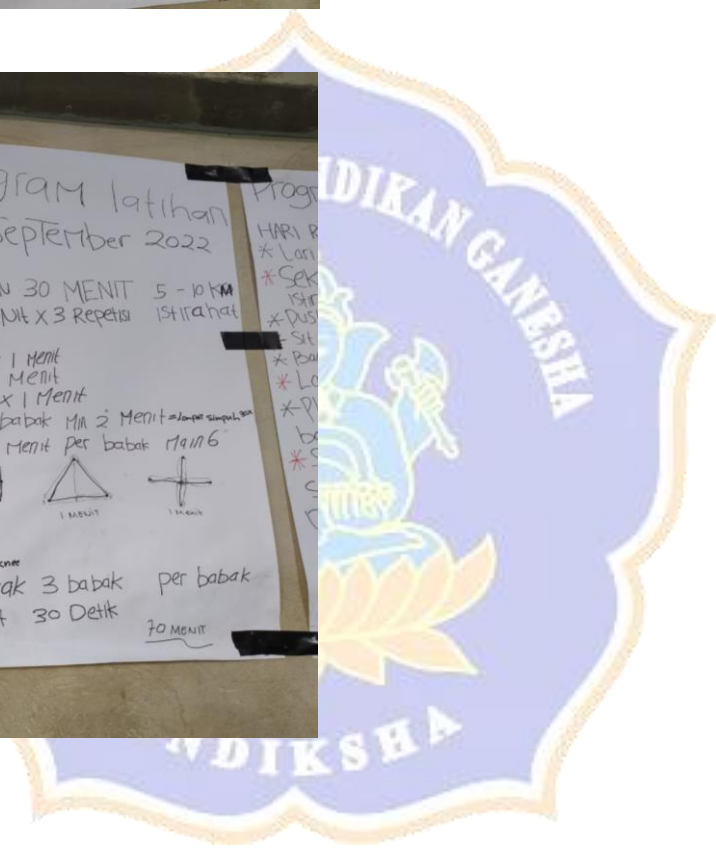 gram latihan
September 2022
30 MENIT 5 - 10 KM
Nit x 3 Repetisi istirahat
1 Menit
Menit
x 1 Menit
babak Min 2 Menit =
Menit per babak Main 6
1 MENIT
1 Menit
knee
ak 3 babak per babak
30 Detik
70 MENIT
Progr
HARI R
* Lari
* Sek
istir
* Pus
* Sit
* Ba
* Lo
* P
ba
* S
S
IDIKAN GANESHA
NDIKSHA